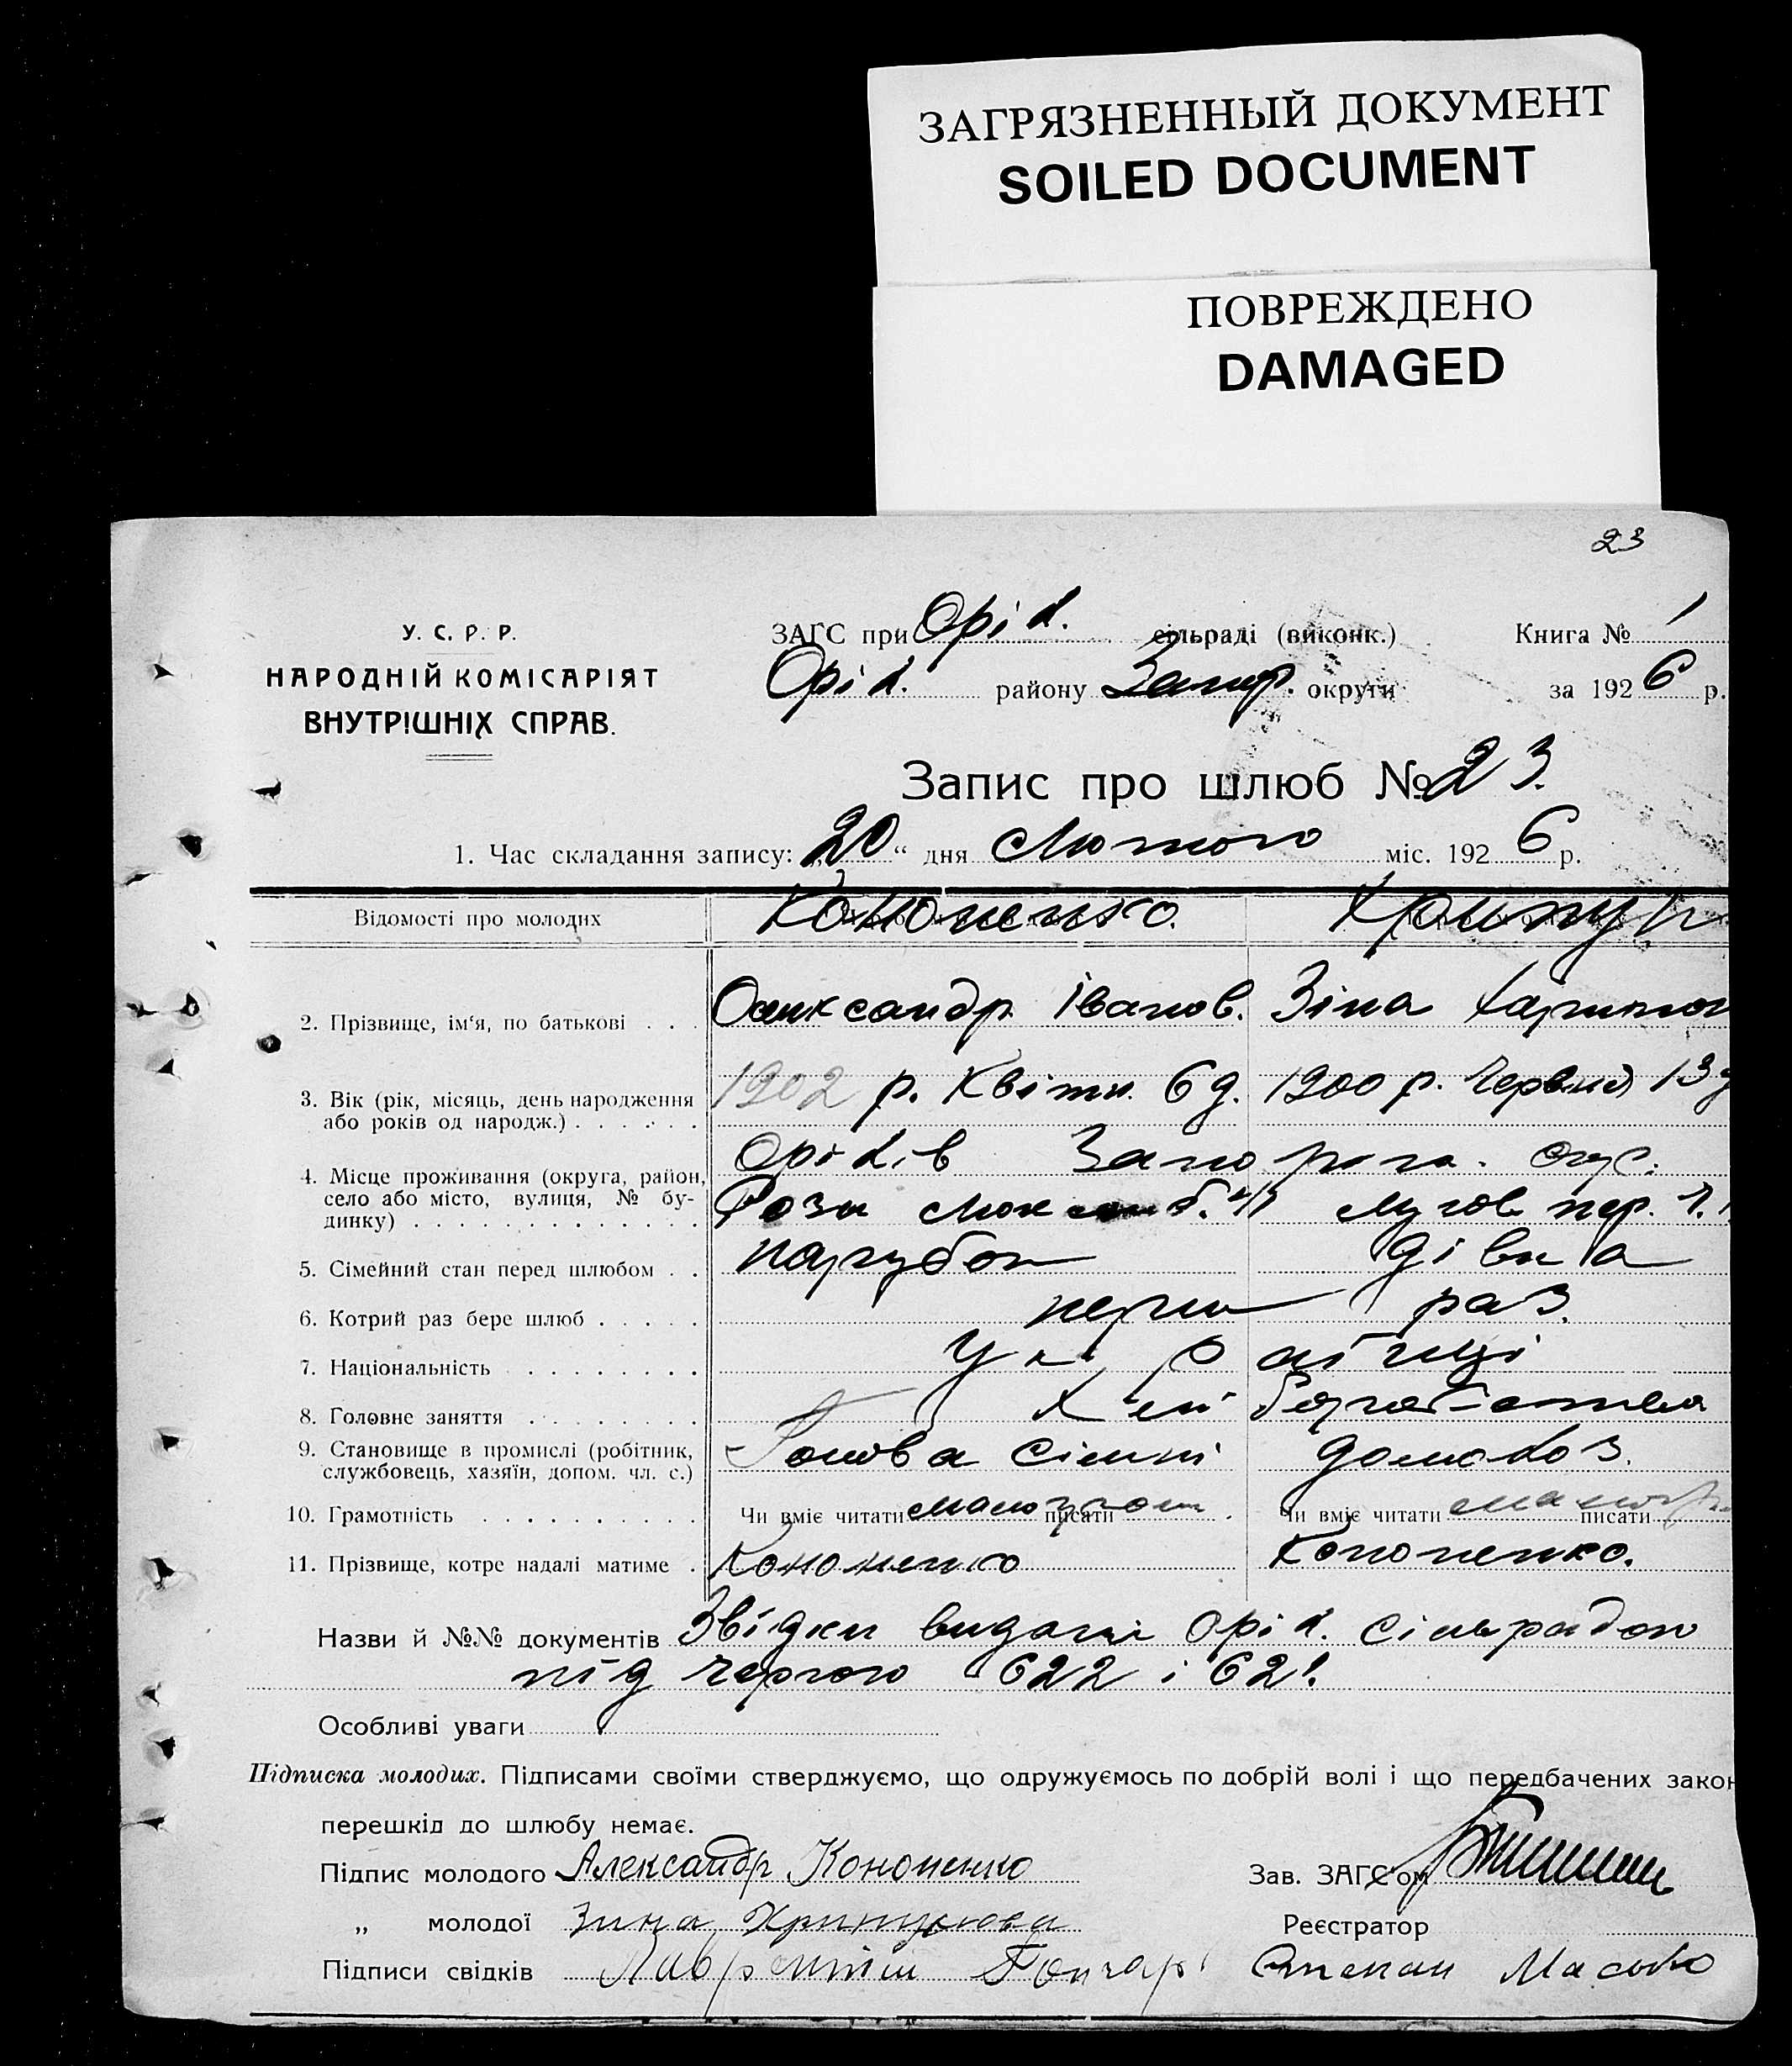 ЗАГРЯЗНЕННЫЙ ДОКУМЕНТ
SOILED DOCUMENT
ПОВРЕЖДЕНО
DAMAGED
23
У. С. Р. Р.
НАРОДНІЙ КОМІСАРІЯТ
ВНУТРІШНІХ СПРАВ.
ЗАГС при Оріх. сільраді (виконк.) Книга № 1
Оріх. району Запор. округи за 1926 р.
Запис про шлюб № 23.
1. Час складання запису: „20“ дня Лютого міс. 1926 р.
Відомості про молодих Кононенко.
2. Прізвище, ім'я, по батькові . . . Олександр Іванов. Зіна
3. Вік (рік, місяць, день народження або років од народж.) . . . . . . 1902 р. Квітн. 6 д. 1900 р. Червня 13 д
4. Місце проживання (округа, район, село або місто, вулиця, № будинку) . . . . . . . . . . . . . Оріхів Запоріж. окр.
Рози Люк пер.
5. Сімейний стан перед шлюбом . . парубок дівка
6. Котрий раз бере шлюб . . . . . перш раз.
7. Національність . . . . . . . . Укр
8. Головне заняття . . . . . . . . Хліборобство
9. Становище в промислі (робітник, службовець, хазяїн, допом. чл. с.) Голова сімї домохоз.
10. Грамотність . . . . . . . . . . Чи вміє читати малограм писати . Чи вміє читати малогр. писати
11. Прізвище, котре надалі матиме . Кононенко Кононенко.
Назви й №№ документів Звідки видані Оріх. Сільрадою
під чергою 622 і 621.
Особливі уваги
Підписка молодих. Підписами своїми стверджуємо, що одружуємось по добрій волі і що передбачених закон
перешкід до шлюбу немає.
Підпис молодого Александр Кононенко Зав. ЗАГС'ом
„ молодої Зина Реєстратор
Підписи свідків Лаврентій Гончарь Степан